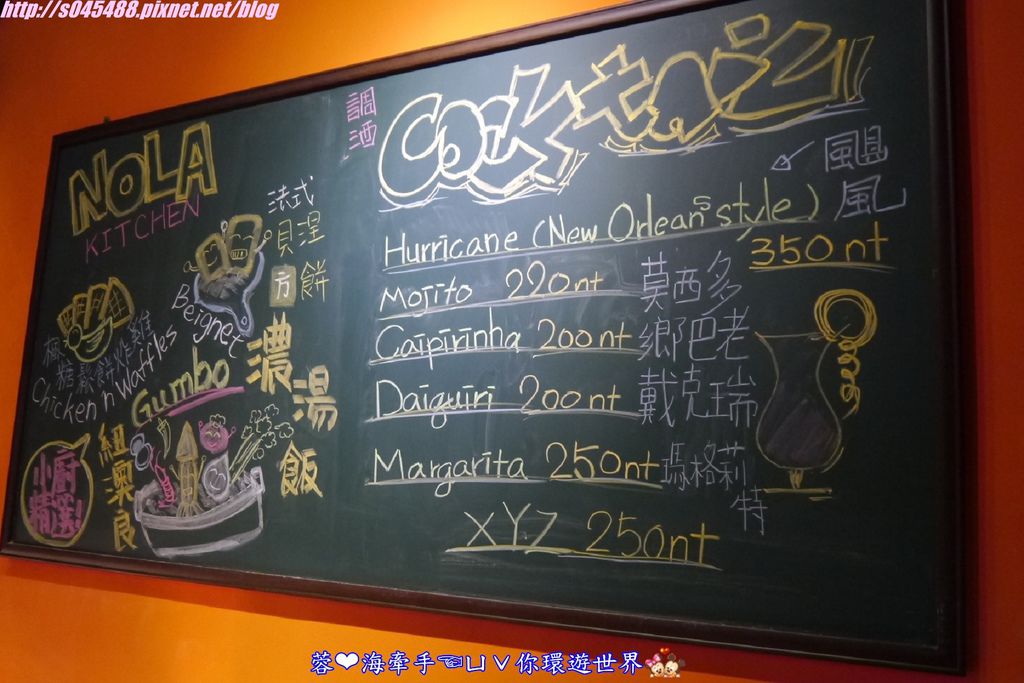 http://s045488.pixnet.net/blog
NOLA
KITCHEN
法式
貝涅
方餅
Beignet
楓糖鬆餅炸雞
Chicken n Waffles
Gumbo
濃湯飯
紐澳良
小廚
精選!
調酒
Cocktail
颶風
Hurricane (New Orleans style)
350 nt
Mojito 220nt 莫西多
Caipirinha 200nt 鄉巴老
Daiguiri 200nt 戴克瑞
Margarita 250nt 瑪格莉特
XYZ 250nt
蓉❤海牽手☜ㄩㄥ你環遊世界